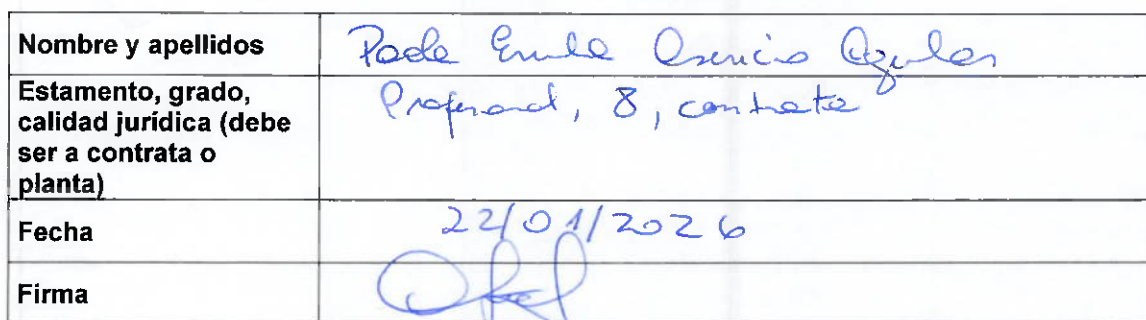 Nombre y apellidos
Paola Emilia Asencio Aguilar
Estamento, grado,
calidad jurídica (debe
ser a contrata o
planta)
Profesional, 8, contrata
Fecha
22/01/2026
Firma